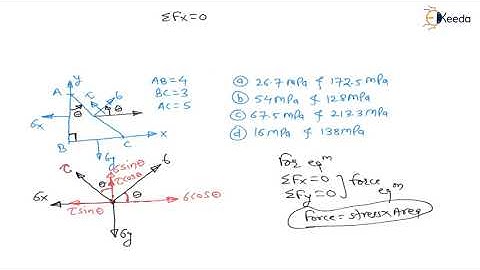 ΣFx=0
Ekeeda
y
A
τ
6
θ
θ
6x
B
C
x
6y
AB=4
BC=3
AC=5
ⓐ 26.7 mpa & 172.5 mpa
ⓑ 54 mpa & 128 mpa
ⓒ 67.5 mpa & 213.3 mpa
ⓓ 16 mpa & 138 mpa
τ
6sinθ
τcosθ
6
θ
θ
6x
τsinθ
6cosθ
6y
For eqm
ΣFx=0
ΣFy=0
force eqm
Force=stress×Area